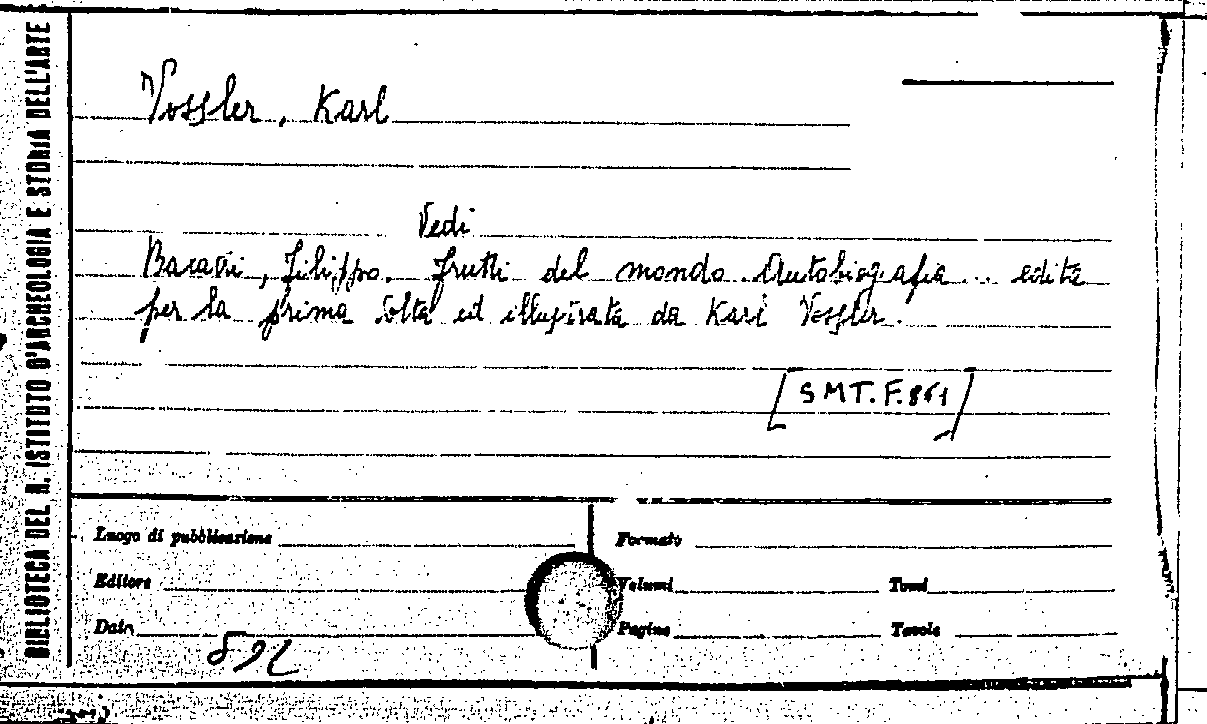 BIBLIOTECA DEL R. ISTITUTO D'ARCHEOLOGIA E STORIA DELL'ARTE
Vossler, Karl
Vedi
Filippo. Frutti del mondo Autobiografia... edita
per la prima volta ed illustrata da Karl Vossler.
[SMT.F.861]
Luogo di pubblicazione
Formato
Editore
Volumi
Tomi
Data
Pagine
Tavole